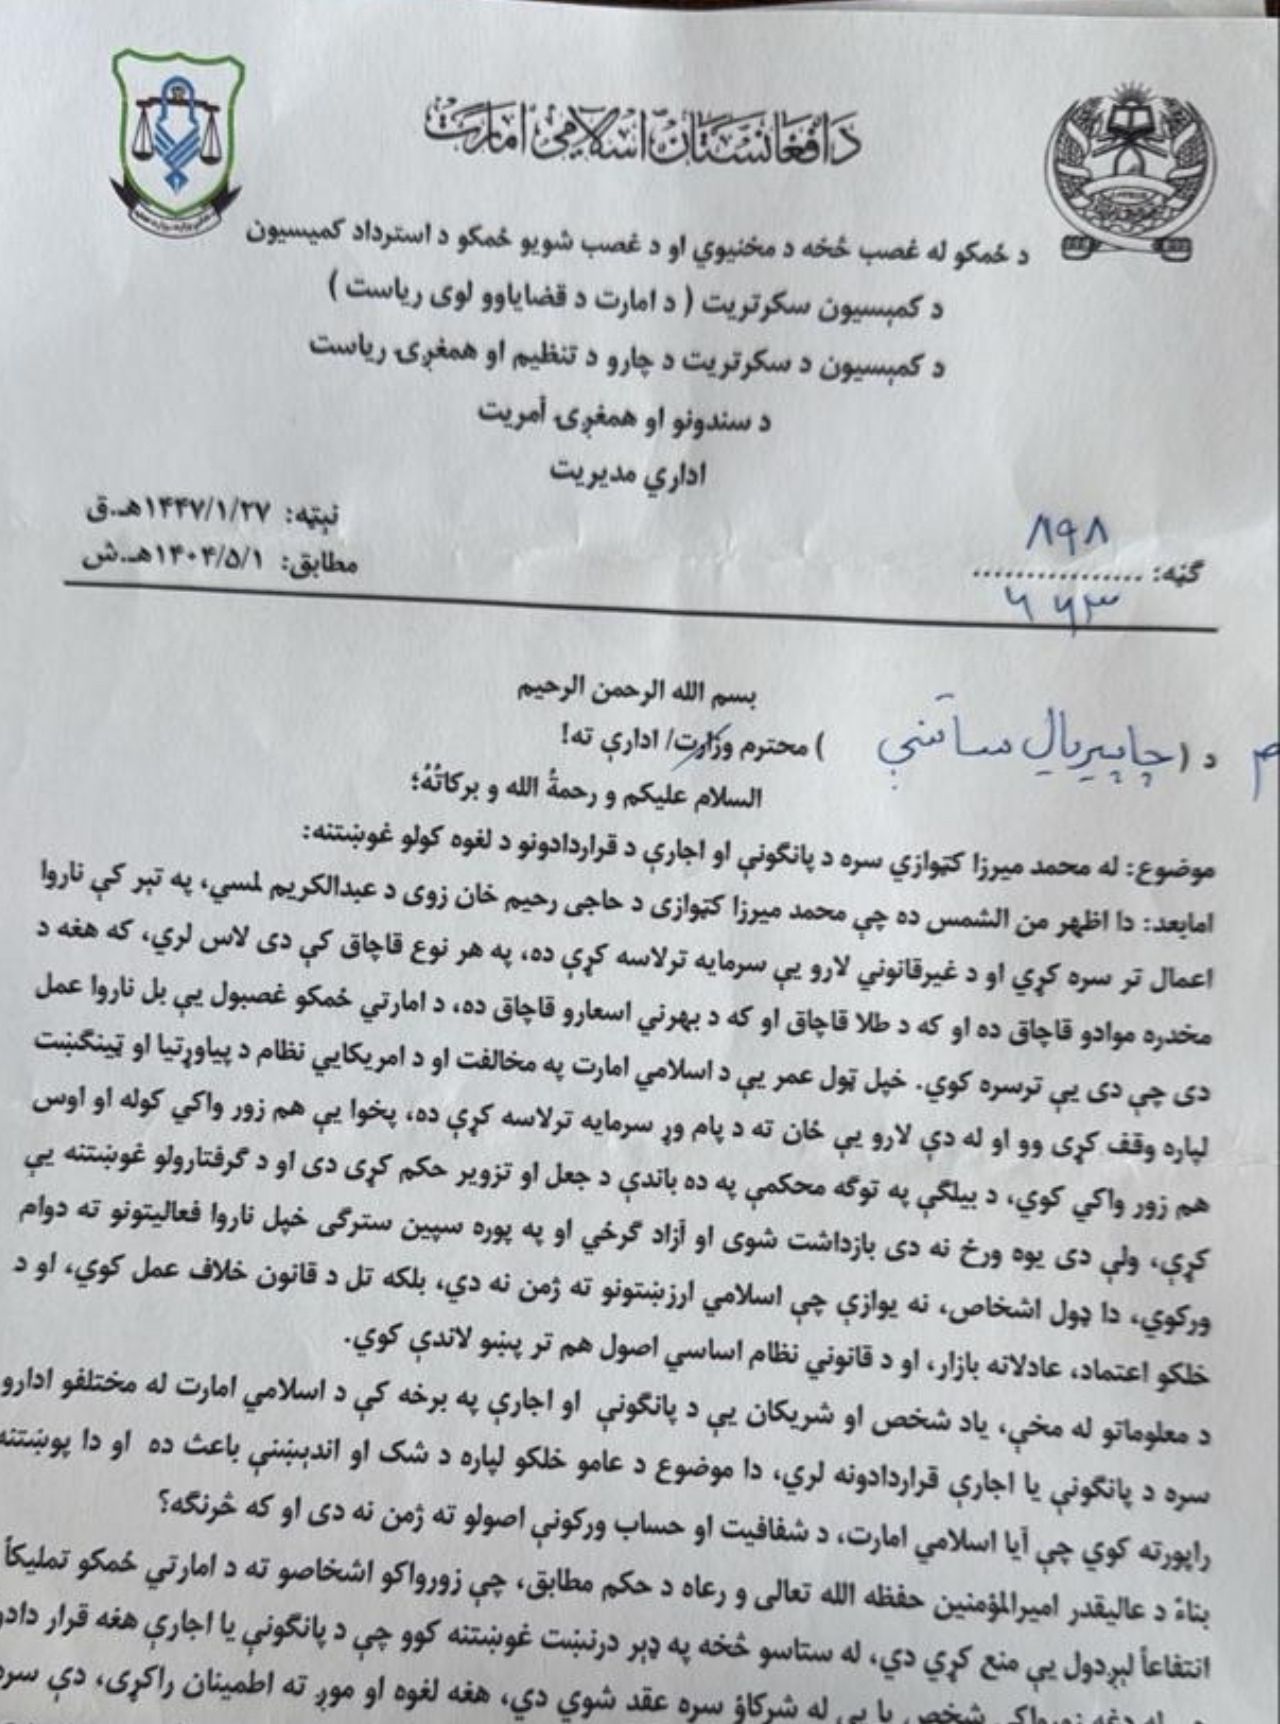 د افغانستان اسلامي امارت
د ځمکو له غصب څخه د مخنیوي او د غصب شویو ځمکو د استرداد کمیسیون
د کمېسیون سکرتریت ( د امارت د قضایاوو لوی ریاست )
د کمېسیون د سکرتریت د چارو د تنظیم او همغږۍ ریاست
د سندونو او همغږۍ آمریت
اداري مدیریت
نېټه: ۱۴۴۷/۱/۲۷هـ.ق
مطابق: ۱۴۰۴/۵/۱هـ.ش
۸۹۸
ګڼه: ................
۶۶۳
بسم الله الرحمن الرحیم
د ( چاپیریال ساتنې ) محترم وزارت/ ادارې ته!
السلام علیکم و رحمةُ الله و برکاتُهُ؛
موضوع: له محمد میرزا کټوازي سره د پانګونې او اجارې د قراردادونو د لغوه کولو غوښتنه:
امابعد: دا اظهر من الشمس ده چې محمد میرزا کټوازی د حاجی رحیم خان زوی د عبدالکریم لمسي، په تېر کې ناروا
اعمال تر سره کړي او د غیرقانوني لارو یې سرمایه ترلاسه کړې ده، په هر نوع قاچاق کې دی لاس لري، که هغه د
مخدره موادو قاچاق ده او که د طلا قاچاق او که د بهرني اسعارو قاچاق ده، د امارتي ځمکو غصبول یې بل ناروا عمل
دی چې دی یې ترسره کوي. خپل ټول عمر یې د اسلامي امارت په مخالفت او د امریکایي نظام د پیاوړتیا او ټینګښت
لپاره وقف کړی وو او له دې لارو یې ځان ته د پام وړ سرمایه ترلاسه کړې ده، پخوا یې هم زور واکي کوله او اوس
هم زور واکي کوي، د بیلګې په توګه محکمې په ده باندې د جعل او تزویر حکم کړی دی او د ګرفتارولو غوښتنه یې
کړې، ولې دی یوه ورځ نه دی بازداشت شوی او آزاد ګرځي او په پوره سپین سترګی خپل ناروا فعالیتونو ته دوام
ورکوي، دا ډول اشخاص، نه یوازې چې اسلامي ارزښتونو ته ژمن نه دي، بلکه تل د قانون خلاف عمل کوي، او د
خلکو اعتماد، عادلانه بازار، او د قانوني نظام اساسي اصول هم تر پښو لاندې کوي.
د معلوماتو له مخې، یاد شخص او شریکان یې د پانګونې او اجارې په برخه کې د اسلامي امارت له مختلفو ادارو
سره د پانګونې یا اجارې قراردادونه لري، دا موضوع د عامو خلکو لپاره د شک او اندېښنې باعث ده او دا پوښتنه
راپورته کوي چې آیا اسلامي امارت، د شفافیت او حساب ورکونې اصولو ته ژمن نه دی او که څرنګه؟
بناءً د عالیقدر امیرالمؤمنین حفظه الله تعالی و رعاه د حکم مطابق، چې زورواکو اشخاصو ته د امارتي ځمکو تملیکاً
انتفاعاً لېږدول یې منع کړي دي، له ستاسو څخه په ډېر درنښت غوښتنه کوو چې د پانګونې یا اجارې هغه قرار دادو
له دغه زورواکي شخص یا یې له شرکاؤ سره عقد شوي دي، هغه لغوه او موږ ته اطمینان راکړی، دې سره